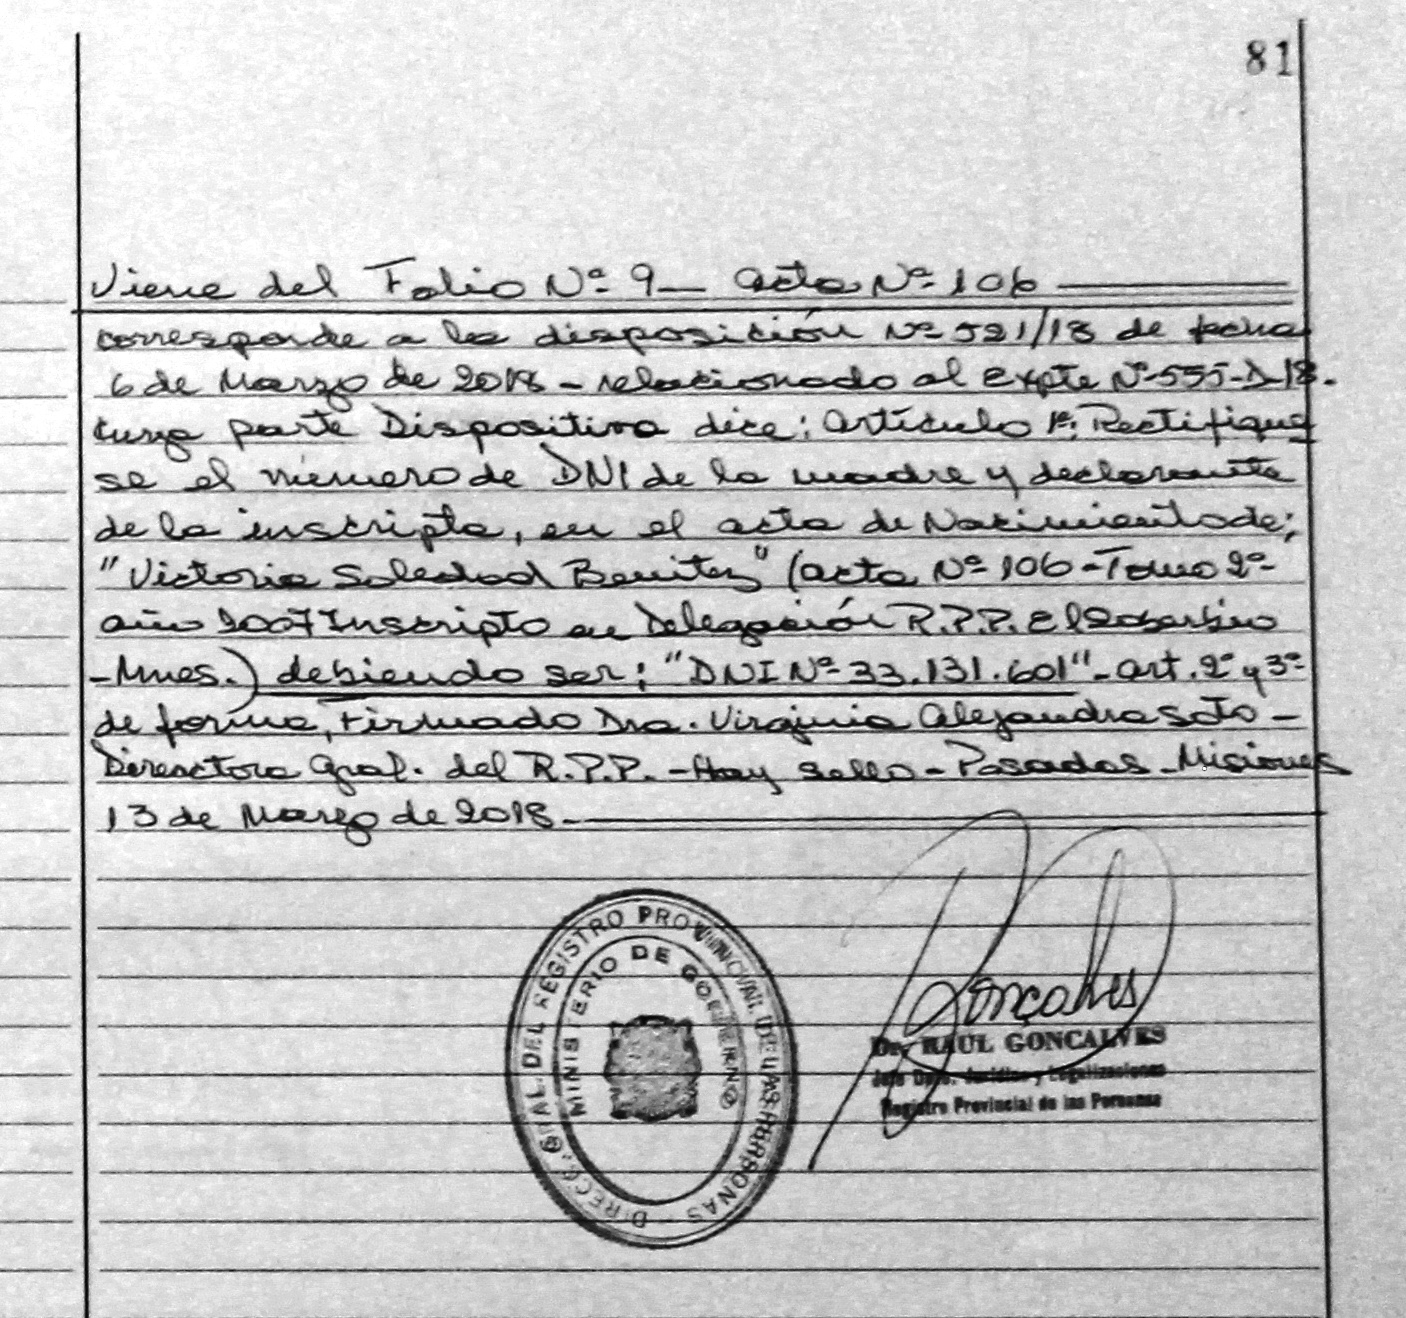 81
Viene del Folio Nº 9 — acta Nº 106
corresponde a la disposición Nº 521/18 de fecha
6 de Marzo de 2018 - relacionado al Expte Nº 555-D-18.
cuya parte Dispositiva dice: Artículo 1º: Rectifique
se el número de DNI de la madre y declarante
de la inscripta, en el acta de Nacimiento de;
"Victoria Soledad Benitez" (acta Nº 106 - Tomo 2º -
año 2007 Inscripto en Delegación R.P.P. El Soberbio
- Mnes.) debiendo ser: "DNI Nº 33.131.601" - art. 2º y 3º
de forma, Firmado Dra. Virginia Alejandra Soto -
Directora Gral. del R.P.P. - Hay sello - Posadas - Misiones
13 de Marzo de 2018.
DIRECC. GRAL. DEL REGISTRO PROVINCIAL DE LAS PERSONAS
MINISTERIO DE GOBIERNO
Gonçalves
Dr. RAUL GONCALVES
Jefe Dpto. Jurídico y Legalizaciones
Registro Provincial de las Personas